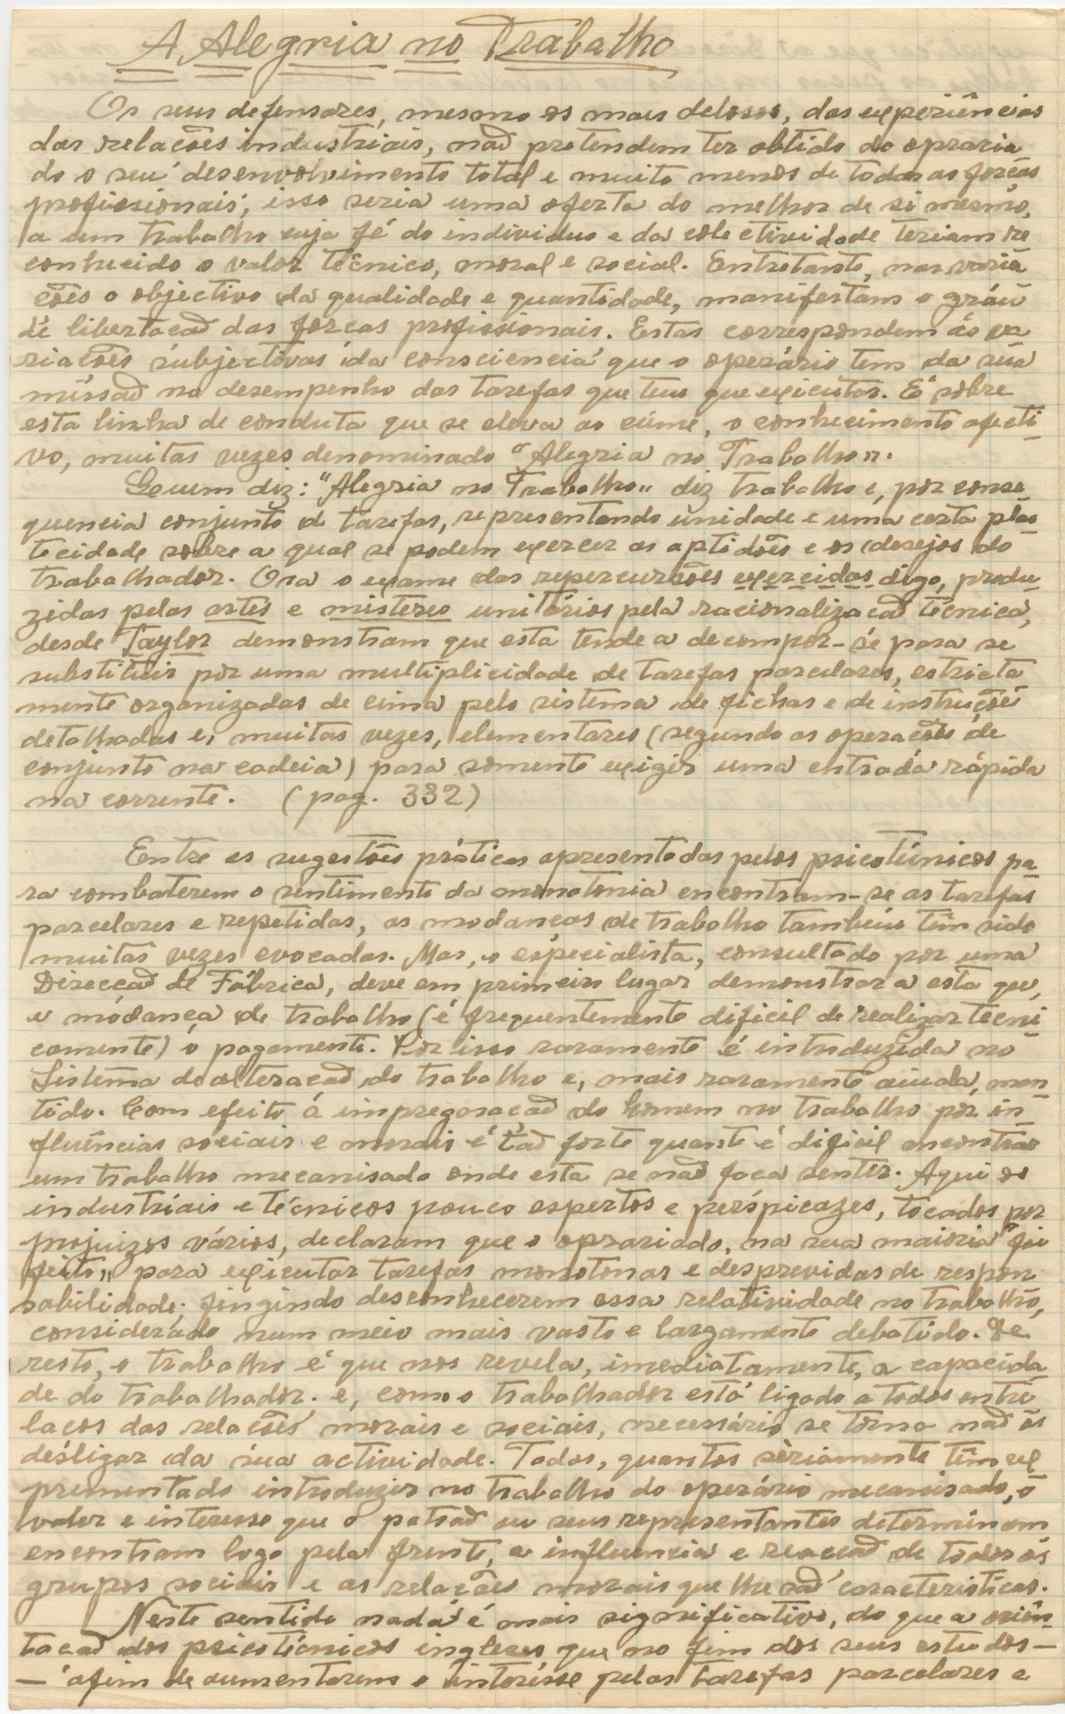 A Alegria no Trabalho
Os seus defensores, mesmo os mais delosos, das experiências
das relações industriais, não pretendem ter obtido do opraria
do o seu desenvolvimento total e muito menos de todas as forças
profissionais; isso seria uma oferta do melhor de si mesmo,
a um trabalho cuja fé do individuo e da colectividade teriam re
conhecido o valor técnico, moral e social. Entretanto, nas varia
ções o objectivo da qualidade e quantidade, manifestam o gráu
de libertação das forças profissionais. Estas correspondem ás va
riações subjectivas da consciencia que o operário tem da sua
missão no desempenho das tarefas que tem que executar. É sobre
esta linha de conduta que se eleva ao cúme, o conhecimento afecti-
vo, muitas vezes denominado "Alegria no Trabalho".
diz: "Alegria no Trabalho" diz trabalho e, por conse
quencia conjunto de tarefas, representando unidade e uma certa plas
tecidade sobre a qual se podem exercer as aptidões e os desejos do
trabalhador. Ora o exame das repercursões exercidas digo, produ-
zidas pelas artes e misteres unitários pela racionalização técnica,
desde Taylor demonstram que esta tende a decompor-se para se
substituir por uma multiplicidade de tarefas parcelares, estricta
mente organizadas de cima pelo sistema de fichas e de instruções
detalhadas e, muitas vezes, elementares (segundo as operações de
conjunto na cadeia) para somente exigir uma entrada rápida
na corrente. (pag. 332)
Entre as sugestões práticas apresentadas pelos psicotécnicos pa
ra combaterem o sentimento da monotonia encontram-se as tarefas
parcelares e repetidas, as modanças de trabalho tambem têm sido
muitas vezes evocadas. Mas, o especialista, consultado por uma
Direcção de Fábrica, deve em primeiro lugar demonstrar a esta que,
a módança de trabalho (é frequentemente dificil de realizar tecni
camente) o pagamento. Por isso raramente é introduzida no
Sistema da alteração do trabalho e, mais raramente ainda, man
tido. Com efeito á impregnação do homem no trabalho por in
fluências sociais e morais é tão forte quanto é dificil encontrar
um trabalho mecanisado onde esta se não faça sentir. Aqui os
industriais e técnicos pouco espertos e perspicazes, tocados por
projuizos vários, declaram que o oprariado, na sua maioria "foi
feito" para executar tarefas monotonas e desprevidas de respon
sabilidade; fingindo desconhecerem essa relatividade no trabalho,
considerado num meio mais vasto e largamente debatido. De
resto, o trabalho é que nos revela, imediatamente, a capacida
de do trabalhador. e, como o trabalhador está ligado a todos entre
laços das relações morais e sociais, necessário se torna não os
desligar da sua actividade. Todos, quantos sèriamente têm ex
prementado introduzir no trabalho do operário mecanisado, o
valor e interesse que o patrão ou seus representantes determinam
encontram logo pela frente, a influencia e reacção de todos os
grupos sociais e as relações morais que lhe são caracteristicas.
Neste sentido nada é mais significativo, do que a orien-
tação dos psicotécnicos ingleses que no fim dos seus estudos—
— afim de aumentarem o interêsse pelas tarefas parcelares e